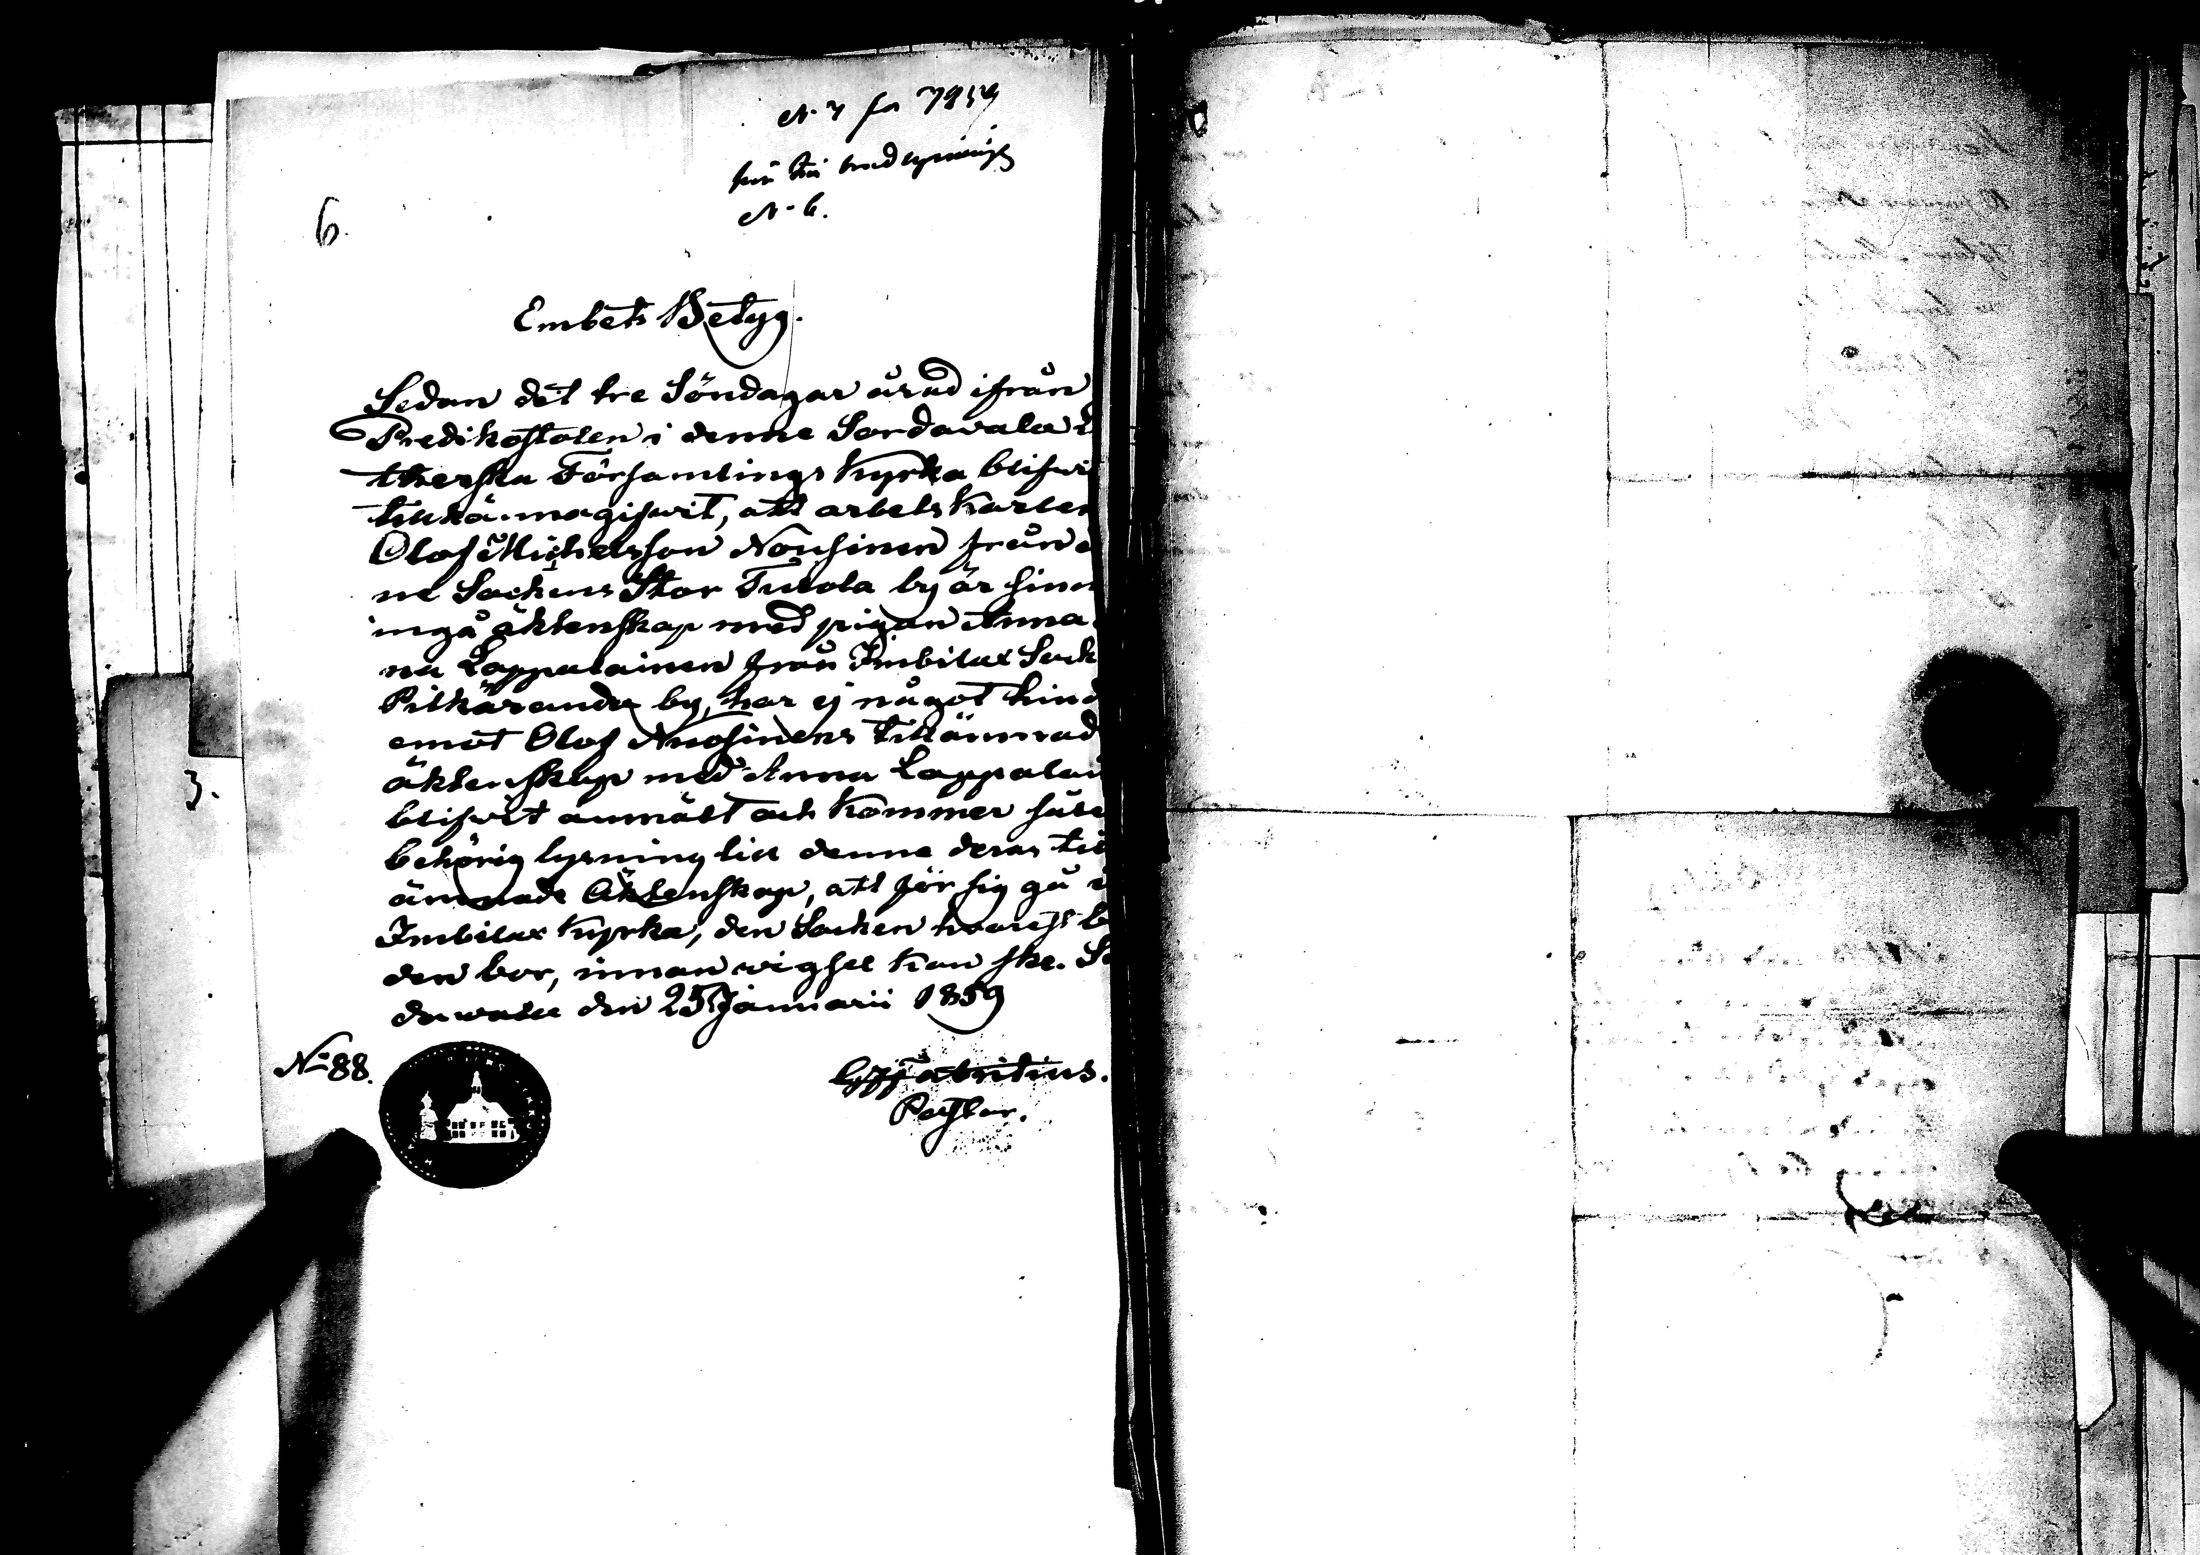 N. 7 för 1859
N. 6.
6.
Embets Betyg.
Sedan det tre Söndagar årad ifrån
Predikostolen i denne Sordavala L
therska Församlings Kyrka blifvi
tillkännagifvit, att arbetskarlen
Olof Michelsson Nousinen från d
ne Sockens Stor Tulola by är sinn
ingå äktenskap med pigan Anna
na Lappalainen från Imbilax Sock
Pitkäranda by, har ej något hind
emot Olof Nuosinens tillämnad
äktenskap med Anna Lappalai
blifvit anmält och kommer
behörig lysning till denna deras till
ämnade Äktenskap, att för sig gå i
Imbilax Kyrka, den Socken hvarest b
den bor, innan vigsel kan ske. So
davala den 25 Januarii 1859
No 88.
Fabritius.
Pastor.
3.